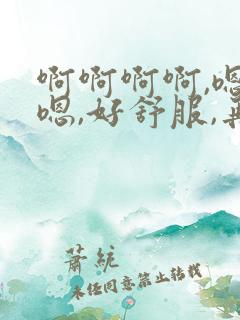 啊啊啊啊,嗯
嗯,好舒服,再
萧统
未经同意禁止转载